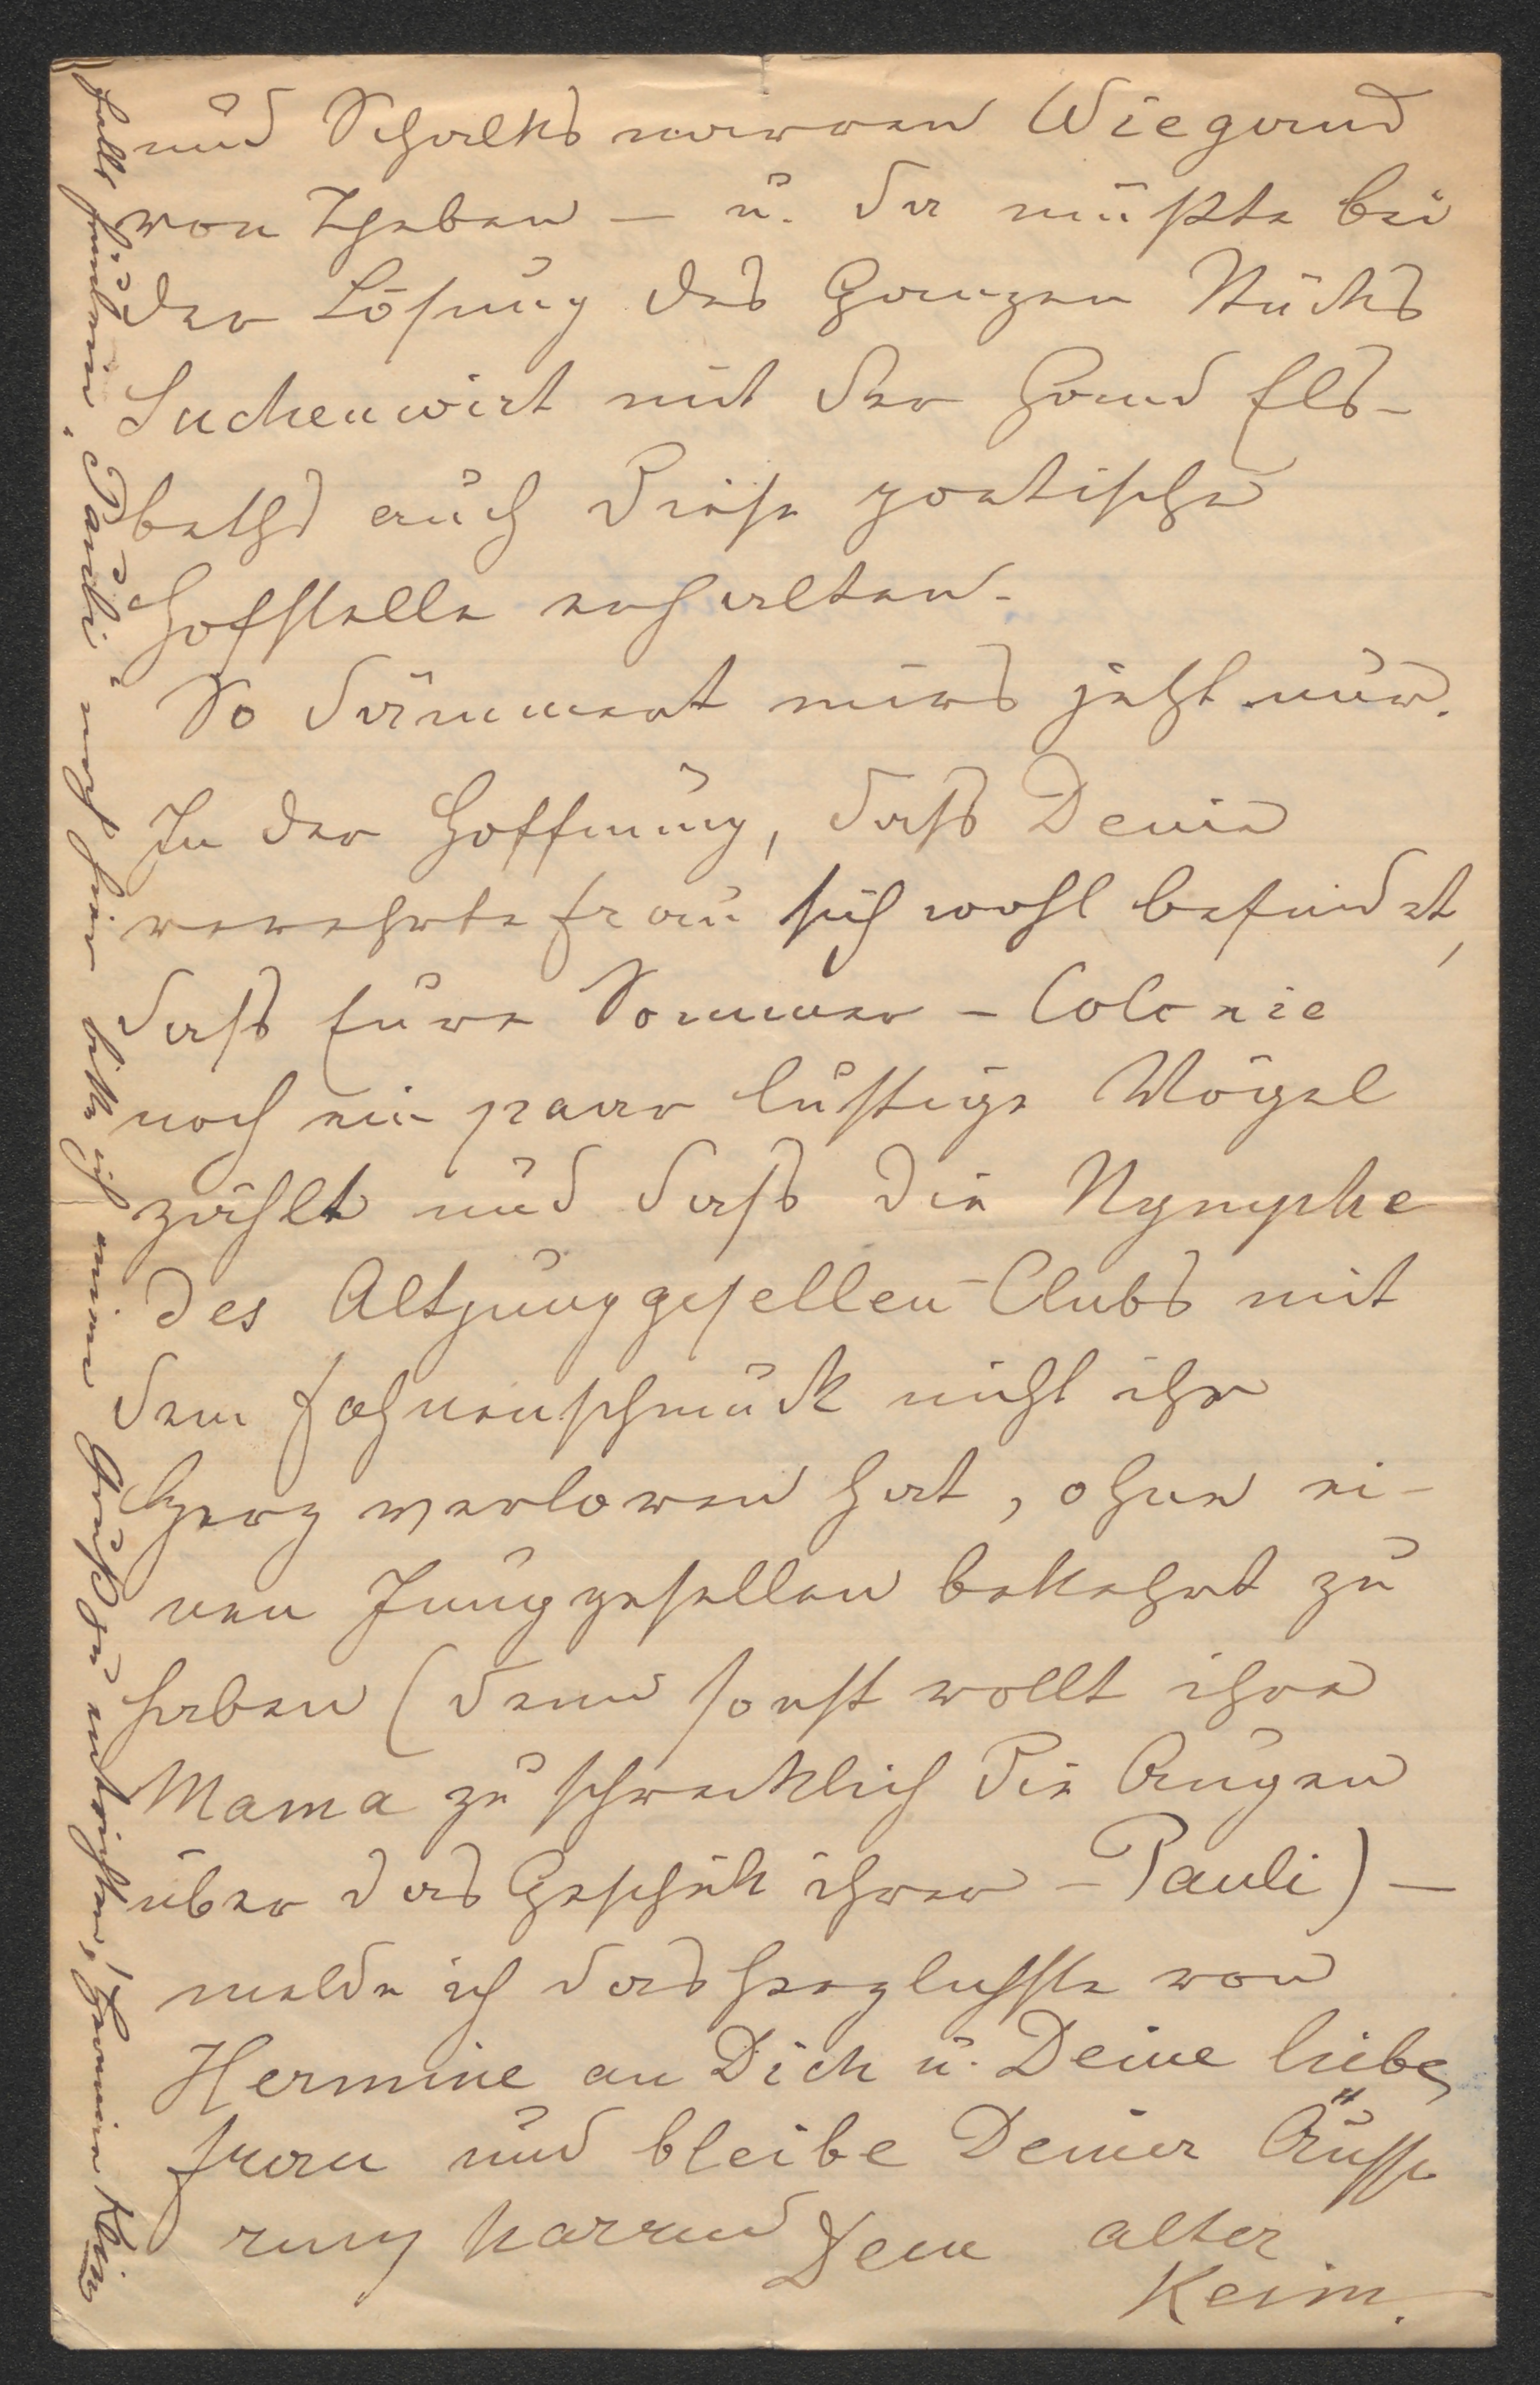 und Schalksnarren Wiegand
von Theben — u. da müßte bei
der Lösung des Ganzen Stücks
Suchenwirt mit der Hand Els-
beths auch diese poetische
Hofstelle erhalten.
So dämmert mirs jetzt nur.
In der Hoffnung, dass Deine
verehrte Frau sich wohl befindet,
dass Eure Sommer-Colonie
noch ein paar lustige Vögel
zählt und dass die Nymphe
des Altjunggesellen-Clubs mit
dem Fahnenschmuck nicht ihr
Herz verloren hat, ohne ei-
nen Junggesellen bekehrt zu
haben (denn sonst rollt ihre
Mama zu schrecklich die Augen
über das Geschick ihrer - Pauli) —
melde ich das herzlichste von
Hermine an Dich u. Deine liebe
Frau und bleibe Deiner Äusse
rung harrend Dein alter
Keim.
Falls Fräulein "Pauli" noch hier bitte ich meine Grüße zu entrichten,